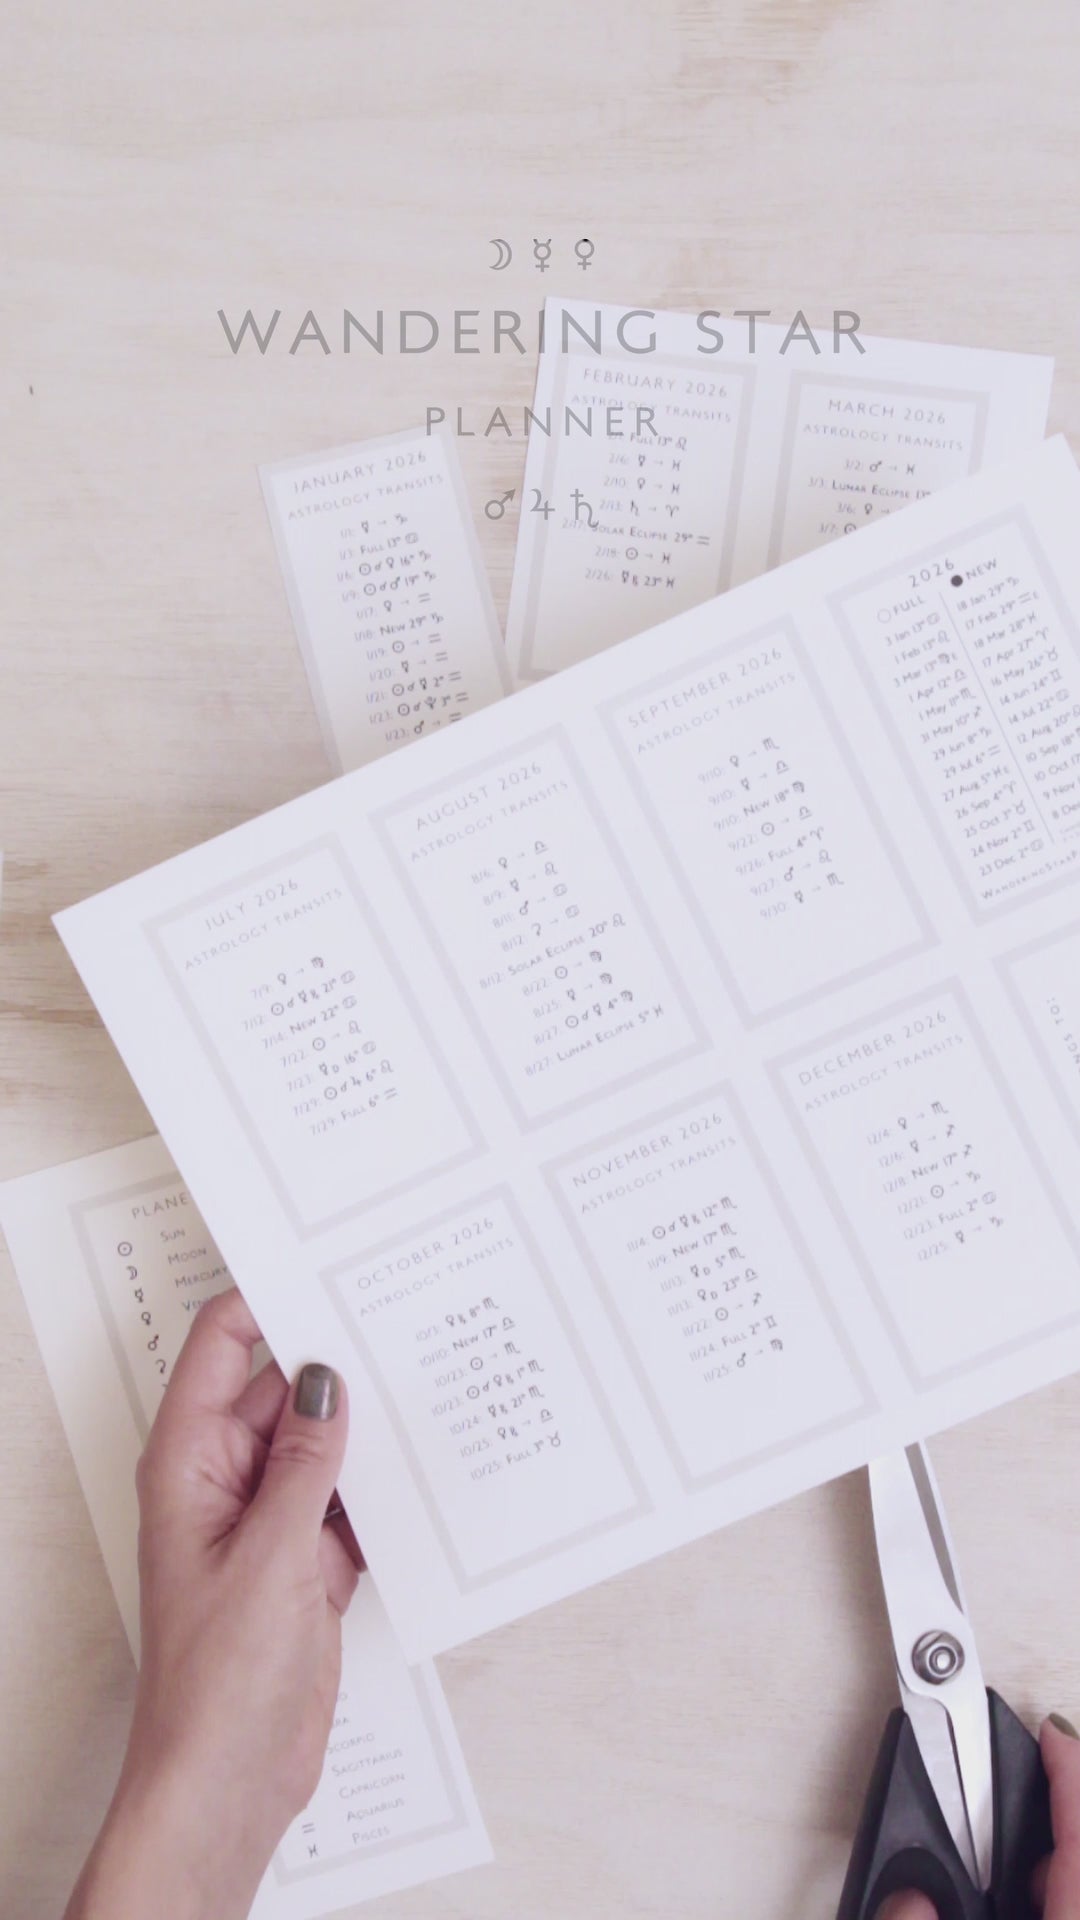 ☽ ☿ ♀
WANDERING STAR
PLANNER
♂ ♃ ♄
JANUARY 2026
ASTROLOGY TRANSITS
1/1: ☿ → ♑
1/3: FULL 13° ♋
1/6: ☉ ☌ ♀ 16° ♑
1/9: ☉ ☌ ♂ 19° ♑
1/17: ♀ → ♒
1/18: NEW 29° ♑
1/19: ☉ → ♒
1/20: ☿ → ♒
1/21: ☉ ☌ ☿ 2° ♒
1/23: ♂ → ♒
FEBRUARY 2026
ASTROLOGY TRANSITS
FULL 13° ♌
2/6: ☿ → ♓
2/10: ♀ → ♓
2/13: ♄ → ♈
2/17: SOLAR ECLIPSE 29° ♒
2/18: ☉ → ♓
2/26: ☿ ℞ 23° ♓
MARCH 2026
ASTROLOGY TRANSITS
3/2: ♂ → ♓
3/3: LUNAR ECLIPSE
3/6: ♀ →
3/7: ☉
JULY 2026
ASTROLOGY TRANSITS
7/9: ♀ → ♍
7/12: ☉ ☌ ☿ ℞ 21° ♋
7/14: NEW 22° ♋
7/22: ☉ → ♌
7/23: ☿ D 16° ♋
7/29: ☉ ☌ ♃ 6° ♌
7/29: FULL 6° ♒
AUGUST 2026
ASTROLOGY TRANSITS
8/6: ♀ → ♎
8/9: ☿ → ♌
8/11: ♂ → ♋
8/12: ⚳ → ♋
8/12: SOLAR ECLIPSE 20° ♌
8/22: ☉ → ♍
8/25: ☿ → ♍
8/27: ☉ ☌ ☿ 4° ♍
8/27: LUNAR ECLIPSE 5° ♓
SEPTEMBER 2026
ASTROLOGY TRANSITS
9/10: ♀ → ♏
9/10: ☿ → ♎
9/10: NEW 18° ♍
9/22: ☉ → ♎
9/26: FULL 4° ♈
9/27: ♂ → ♌
9/30: ☿ → ♏
2026
○FULL ●NEW
3 JAN 13° ♋ 18 JAN 29° ♑
1 FEB 13° ♌ 17 FEB 29° ♒ E
3 MAR 13° ♍ E 18 MAR 28° ♓
1 APR 12° ♎ 17 APR 27° ♈
1 MAY 11° ♏ 16 MAY 26° ♉
31 MAY 10° ♐ 14 JUN 24° ♊
29 JUN 8° ♑ 14 JUL 22° ♋
29 JUL 6° ♒ 12 AUG 20° ♌
27 AUG 5° ♓ E 10 SEP 18°
26 SEP 4° ♈ 10 OCT
25 OCT 3° ♉ 9 NOV
24 NOV 2° ♊ 8 DEC
23 DEC 2° ♋
OCTOBER 2026
ASTROLOGY TRANSITS
10/3: ♀ ℞ 8° ♏
10/10: NEW 17° ♎
10/23: ☉ → ♏
10/23: ☉ ☌ ♀ ℞ 1° ♏
10/24: ☿ ℞ 21° ♏
10/25: ♀ ℞ → ♎
10/25: FULL 3° ♉
NOVEMBER 2026
ASTROLOGY TRANSITS
11/4: ☉ ☌ ☿ ℞ 12° ♏
11/9: NEW 17° ♏
11/13: ☿ D 5° ♏
11/13: ♀ D 23° ♎
11/22: ☉ → ♐
11/24: FULL 2° ♊
11/25: ♂ → ♍
DECEMBER 2026
ASTROLOGY TRANSITS
12/4: ♀ → ♏
12/6: ☿ → ♐
12/8: NEW 17° ♐
12/21: ☉ → ♑
12/23: FULL 2° ♋
12/25: ☿ → ♑
☉ SUN
☽ MOON
☿ MERCURY
♀
♂
⚳
SCORPIO
SAGITTARIUS
CAPRICORN
♒ AQUARIUS
♓ PISCES